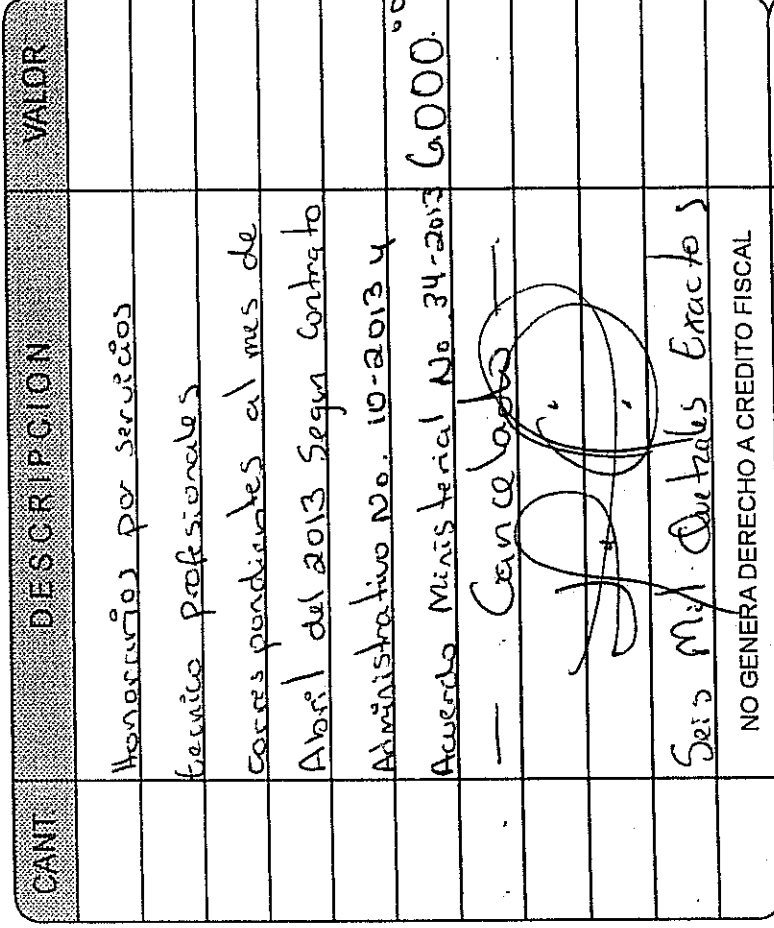 CANT. DESCRIPCION VALOR
Honorarios por servicios
técnico profesionales
correspondientes al mes de
Abril del 2013 Segun Contrato
Administrativo No. 10-2013 y
Acuerdo Ministerial No. 34-2013 6,000.00
— Cancelado —
Seis Mil Quetzales Exactos
NO GENERA DERECHO A CREDITO FISCAL